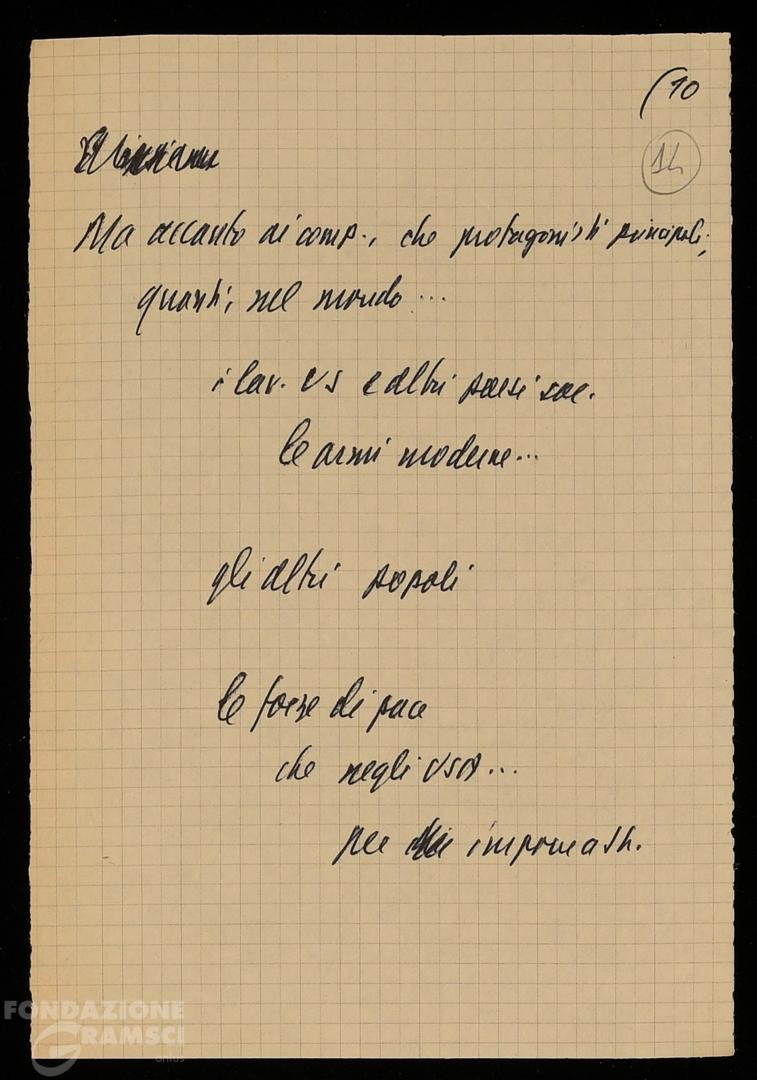 (10
14
Ma accanto ai comp., che protagonisti principali,
quanti, nel mondo...
i lav. US e altri paesi soc.
le armi moderne...
gli altri popoli
le forze di pace
che negli USA...
per
FONDAZIONE
GRAMSCI
onlus